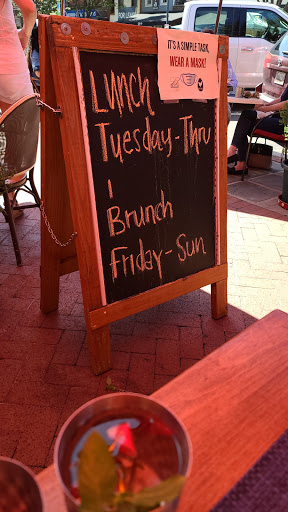 IT'S A SIMPLE TASK,
WEAR A MASK!
LUNCH
Tuesday-Thru
Brunch
Friday-Sun